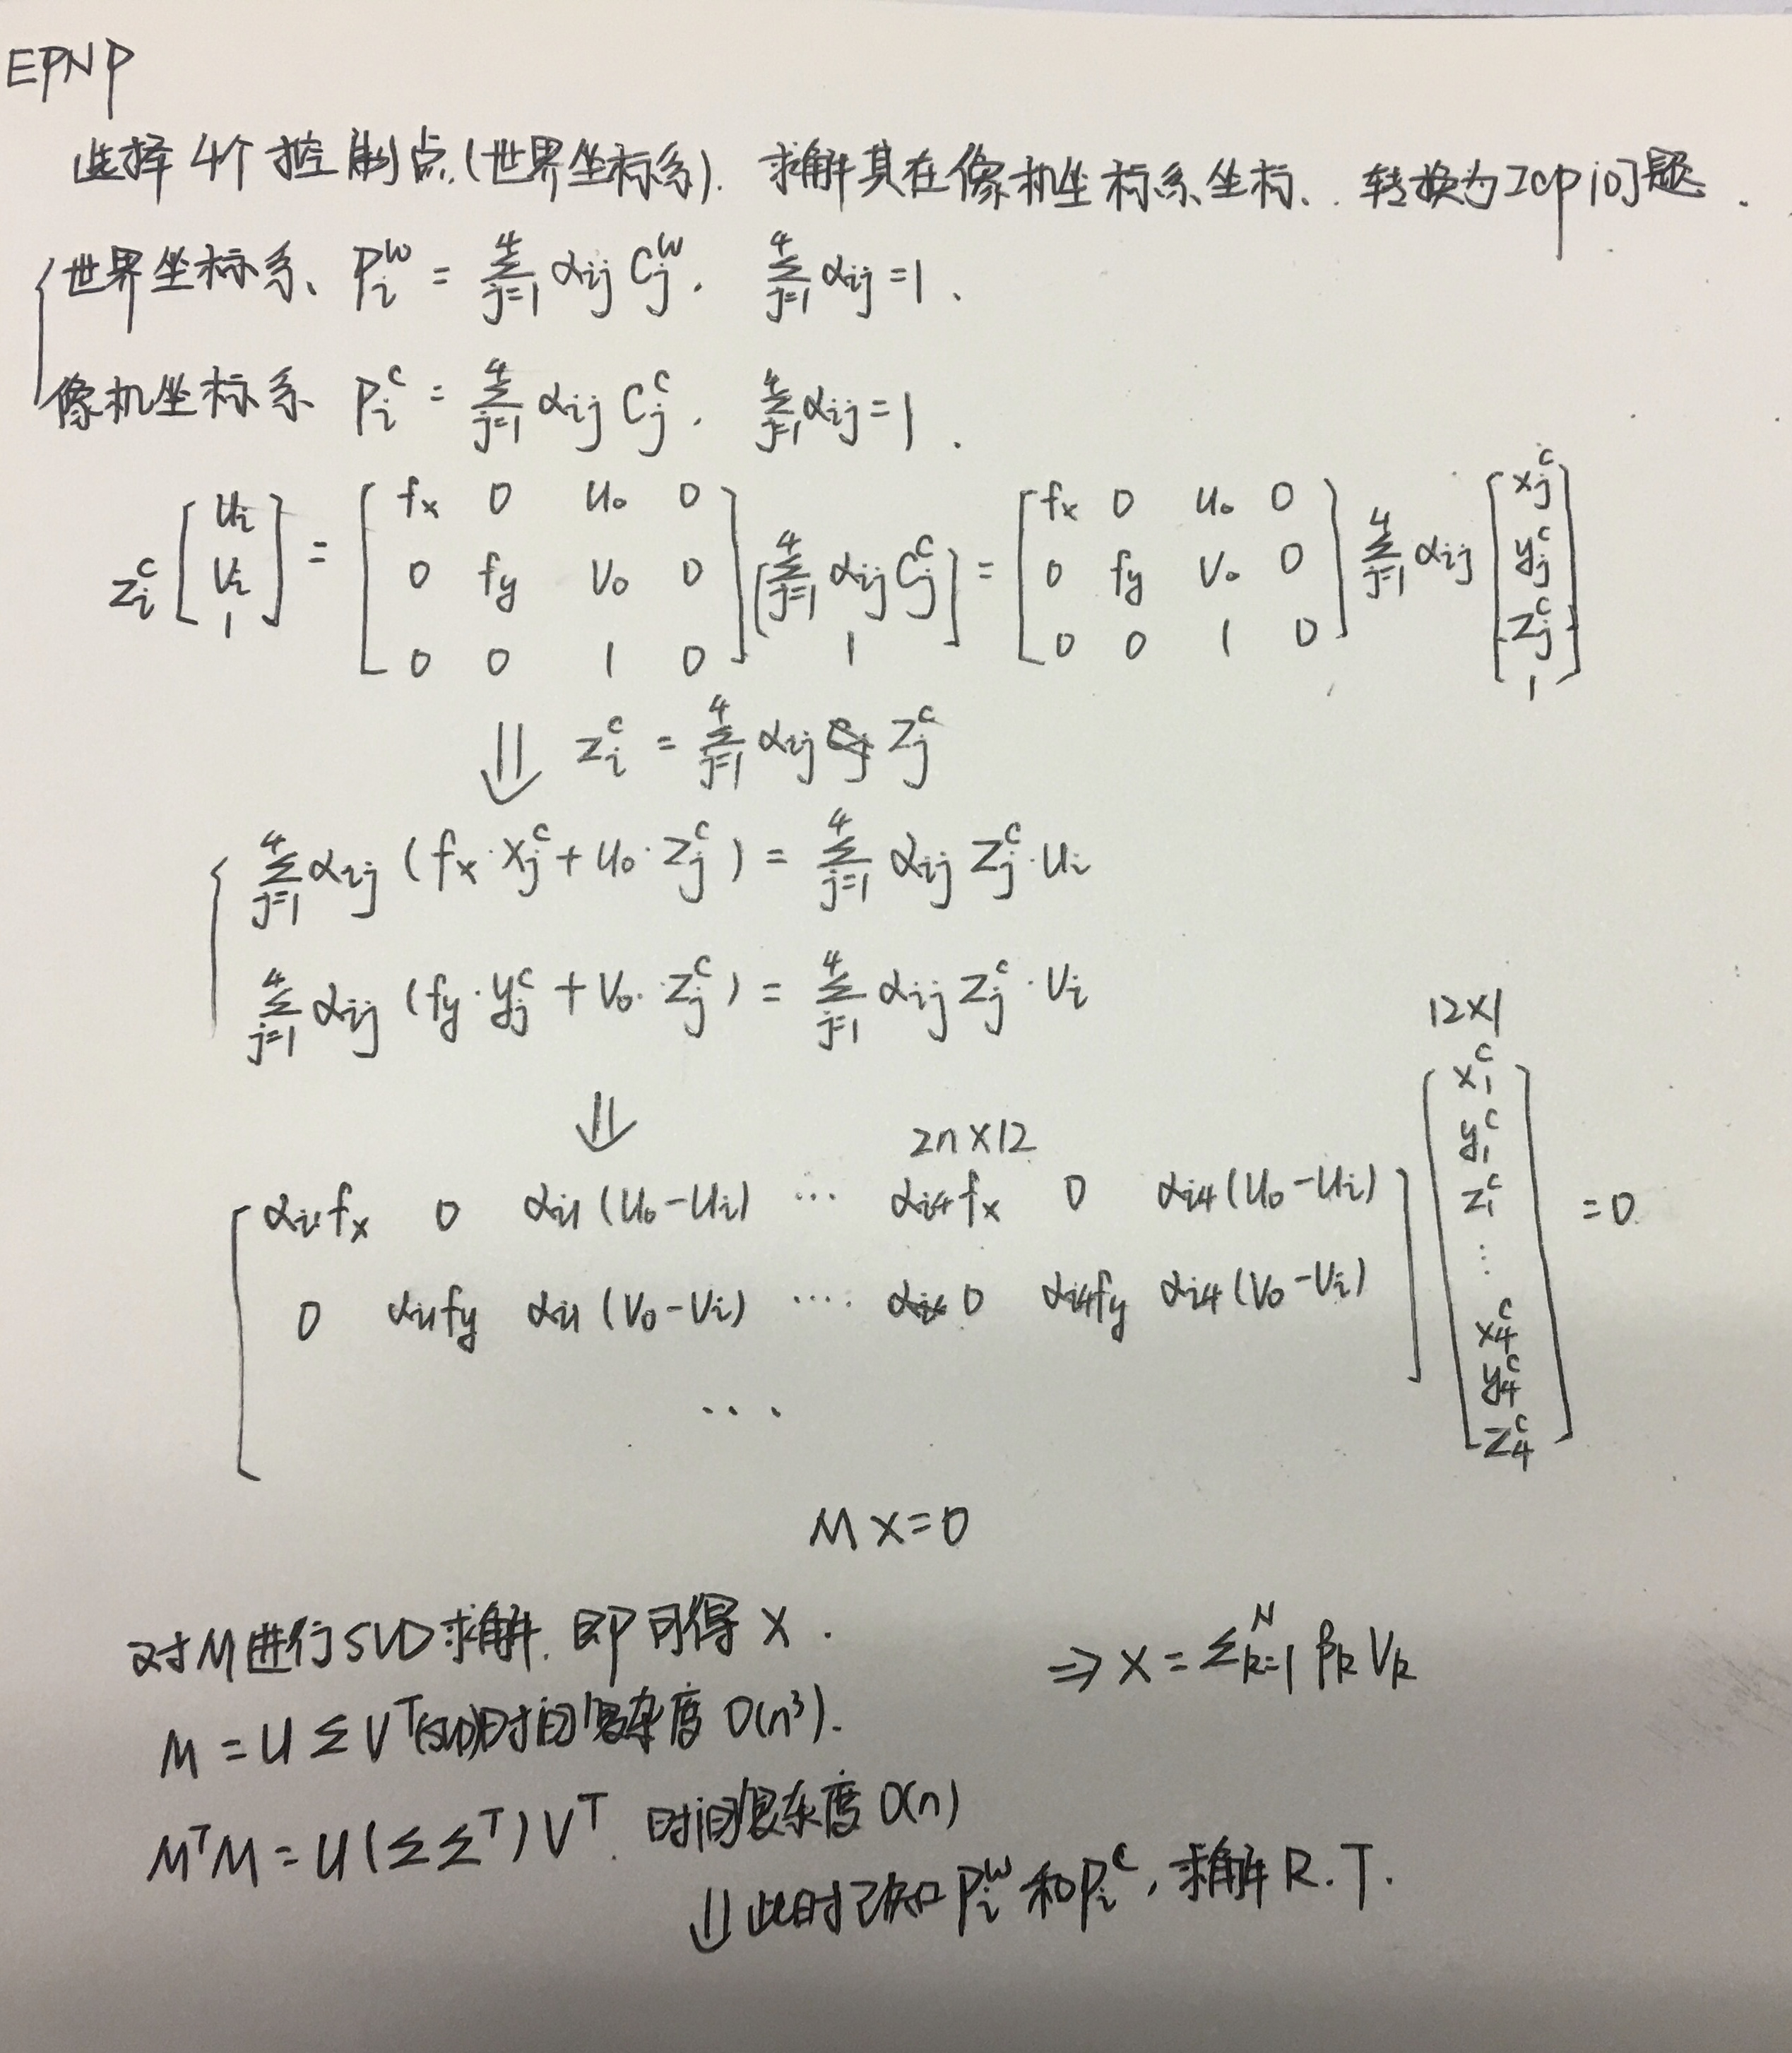 EPNP
选择4个控制点(世界坐标系). 求解其在像机坐标系坐标. 转换为ICP问题.
世界坐标系、 P_i^w = Σ_{j=1}^4 α_ij C_j^w. Σ_{j=1}^4 α_ij = 1.
像机坐标系 P_i^c = Σ_{j=1}^4 α_ij C_j^c. Σ_{j=1}^4 α_ij = 1.
z_i^c [u_i; v_i; 1] = [f_x 0 u_0 0; 0 f_y v_0 0; 0 0 1 0] [Σ_{j=1}^4 α_ij C_j^c; 1] = [f_x 0 u_0 0; 0 f_y v_0 0; 0 0 1 0] Σ_{j=1}^4 α_ij [x_j^c; y_j^c; z_j^c; 1]
⇓ z_i^c = Σ_{j=1}^4 α_ij z_j^c
Σ_{j=1}^4 α_ij (f_x·x_j^c + u_0·z_j^c) = Σ_{j=1}^4 α_ij z_j^c·u_i
Σ_{j=1}^4 α_ij (f_y·y_j^c + v_0·z_j^c) = Σ_{j=1}^4 α_ij z_j^c·v_i
⇓ 2n×12 12×1
[α_i1 f_x 0 α_i1(u_0-u_i) ... α_i4 f_x 0 α_i4(u_0-u_i); 0 α_i1 f_y α_i1(v_0-v_i) .... 0 α_i4 f_y α_i4(v_0-v_i); ...] [x_1^c; y_1^c; z_1^c; ...; x_4^c; y_4^c; z_4^c] = 0
Mx=0
对M进行SVD求解. 即可得x. ⇒ x = Σ_{k=1}^N β_k V_k
M = UΣV^T(SVD)时间复杂度O(n³).
M^T M = U(ΣΣ^T)V^T. 时间复杂度O(n)
⇓ 此时已知P_i^w和P_i^c, 求解R.T.